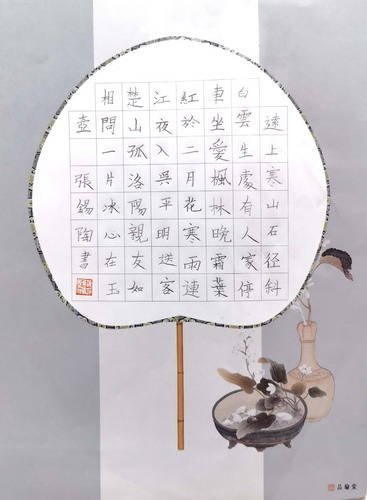 遠上寒山石径斜
白雲生處有人家停
車坐愛楓林晚霜葉
紅於二月花寒雨連
江夜入吳平明送客
楚山孤洛陽親友如
相問一片冰心在玉
壺 張錫陶書
品翰堂